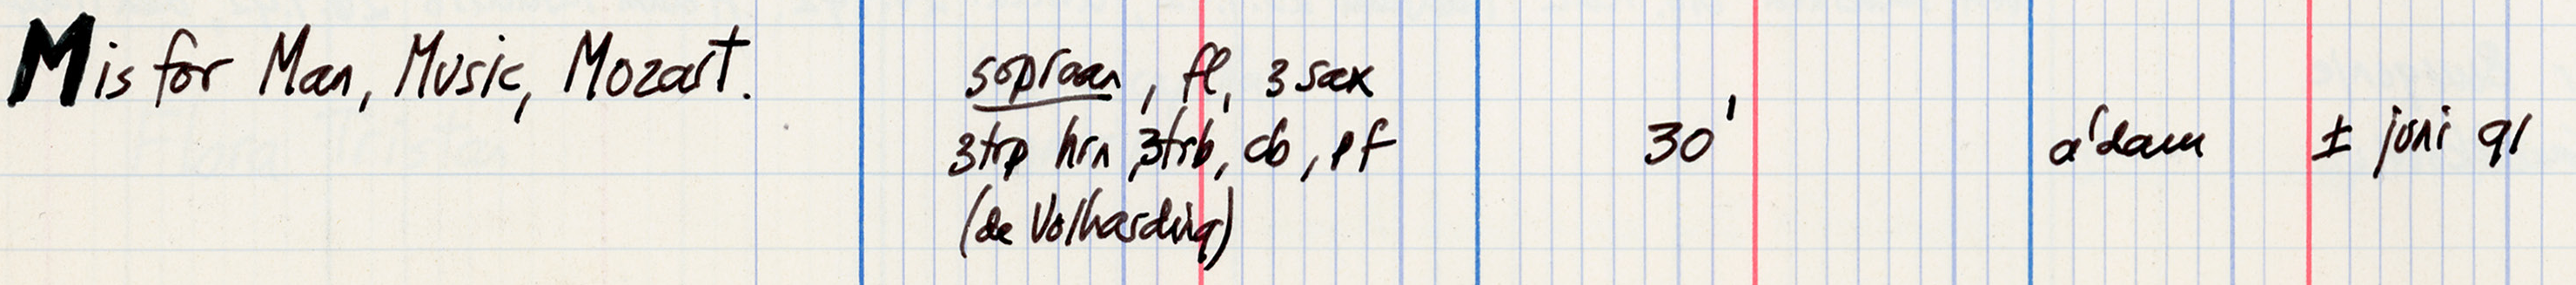 M is for Man, Music, Mozart.
sopraan, fl, 3 sax
3trp hrn, 3trb, cb, pf
(de Volharding)
30'
a'dam
± juni 91